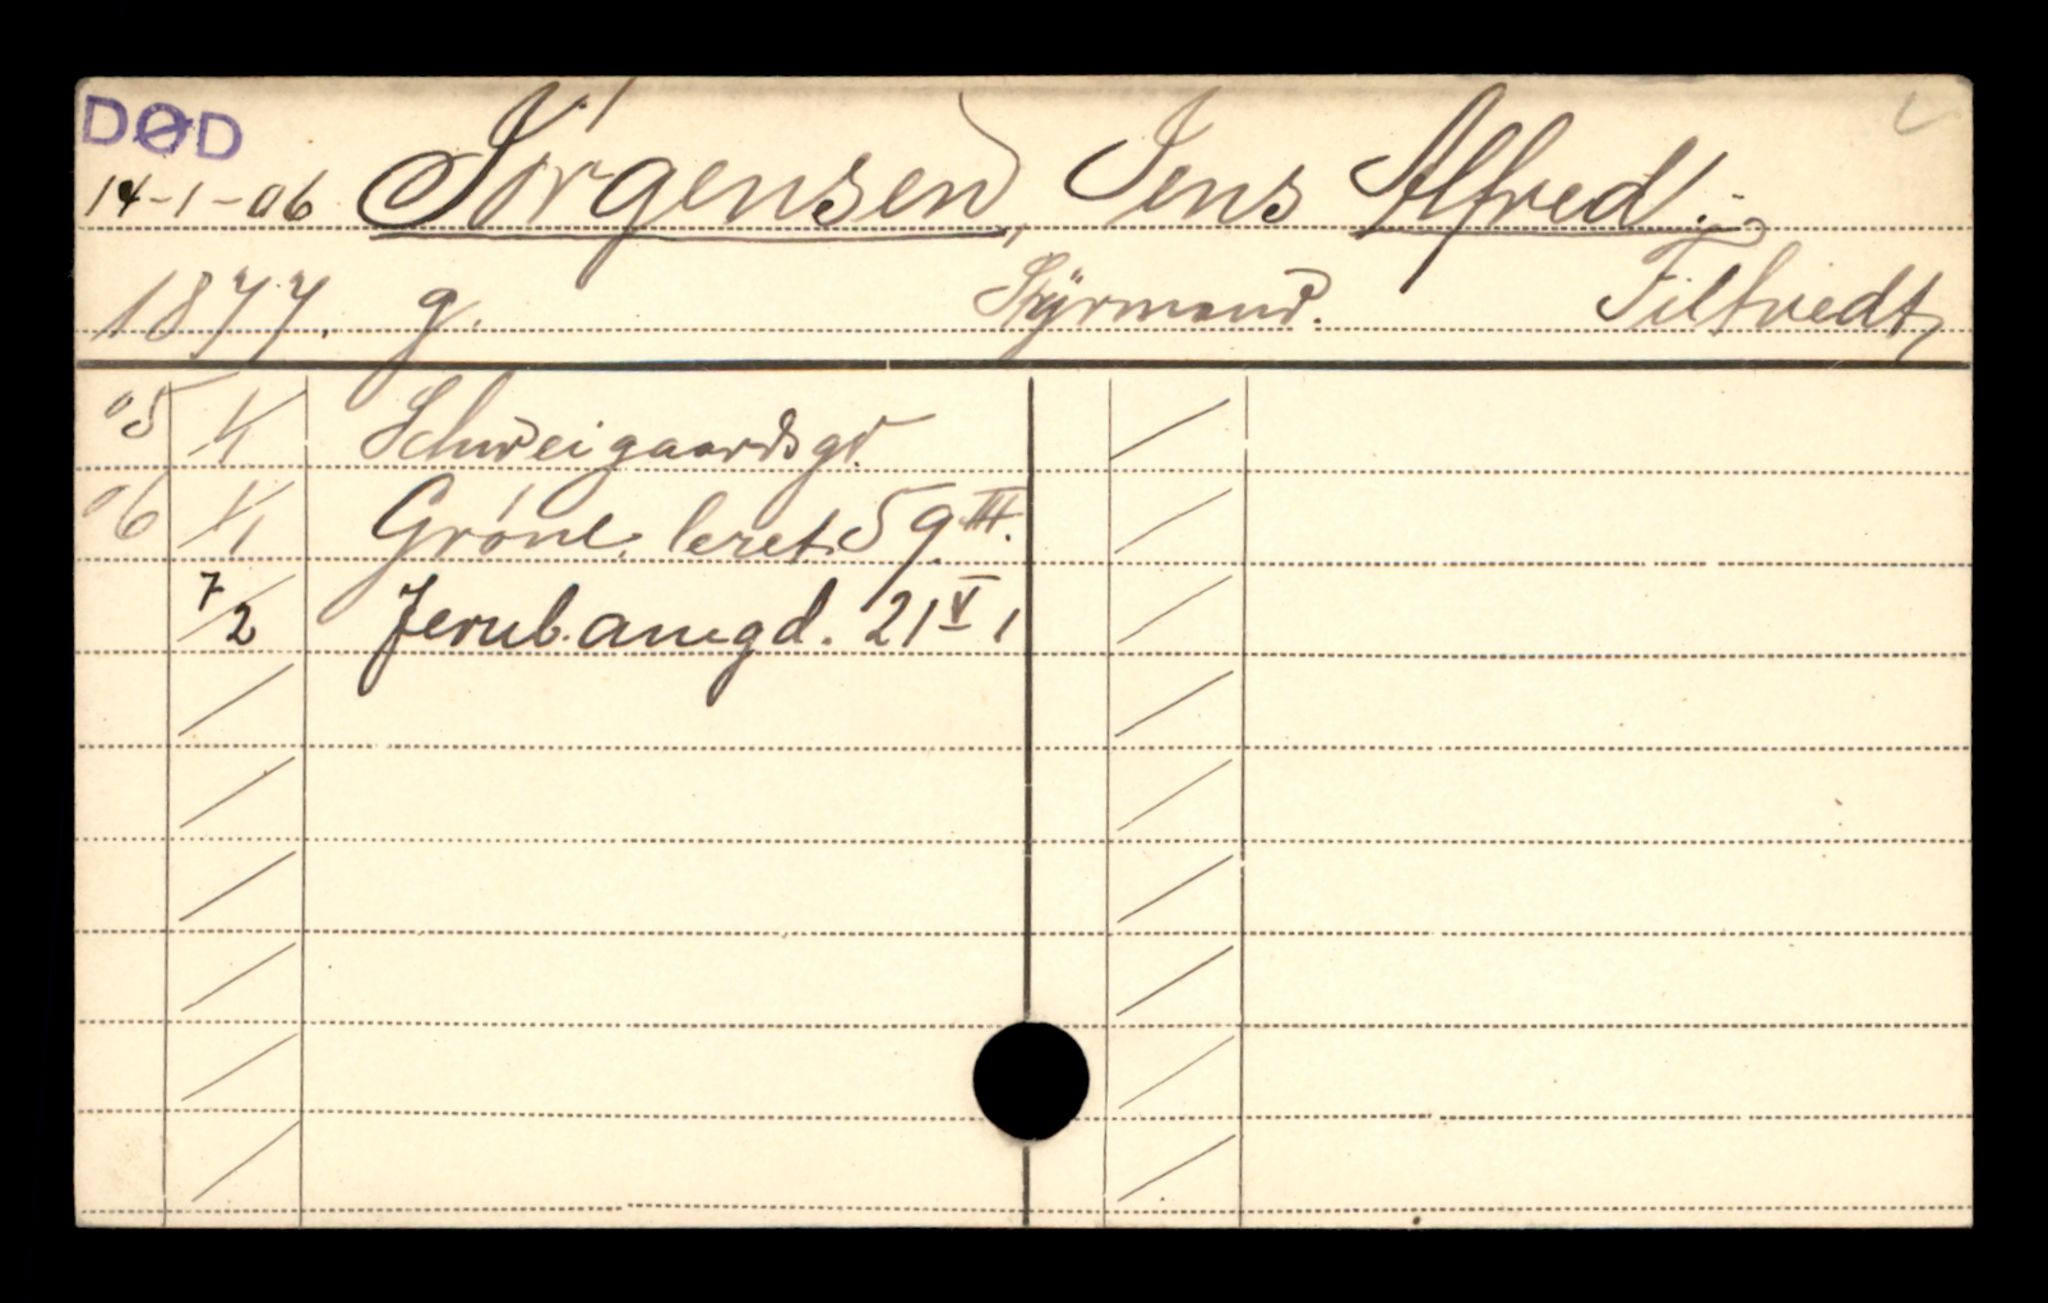 DØD
14-1-06 Jörgensen, Jens Alfred.
1877. g. Styrmand. Filtvedt,
05 1/1 Schweigaardsgt.
06 1/1 Grönl. leret. 59 III.
7/2 Jernb. 21 V 1